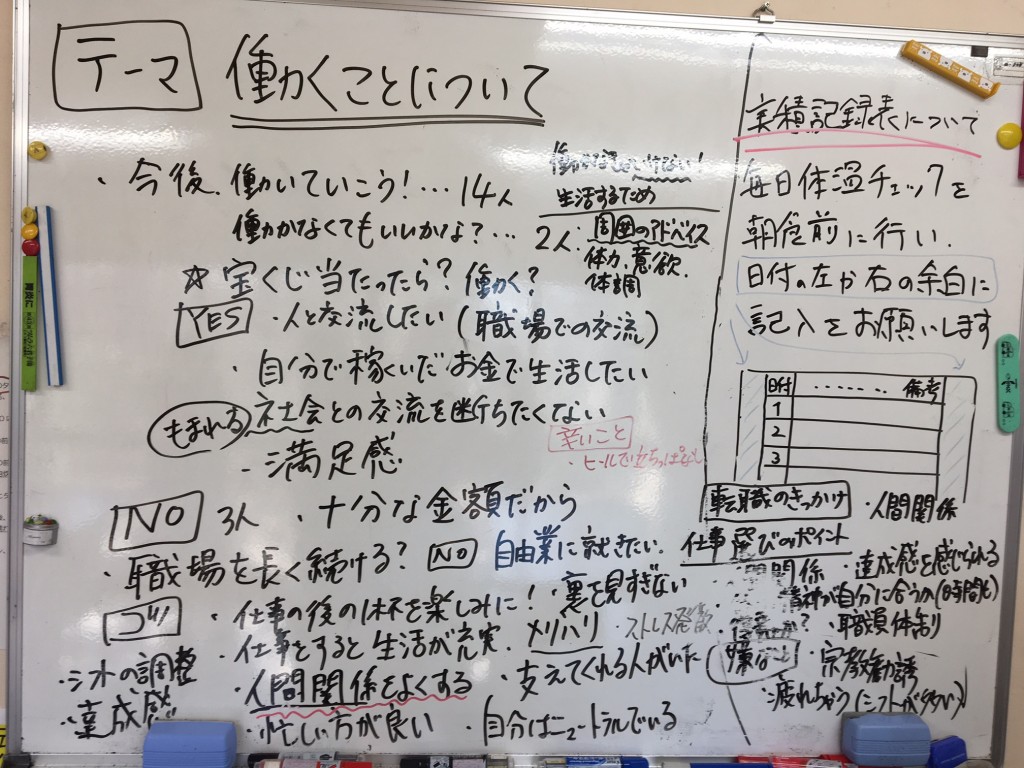 テーマ 働くことについて
・今後、働いていこう!…14人
働かなくてもいいかな?…
働かないといけない!
生活するため
2人:周囲のアドバイス
体力、意欲、
体調
☆宝くじ当たったら?働く?
YES ・人と交流したい(職場での交流)
・自分で稼いだお金で生活したい
もまれる 社会との交流を断ちたくない
・満足感
辛いこと
・ヒールで立ちっぱなし
NO 3人 ・十分な金額だから
・職場を長く続ける? NO 自由業に就きたい。
コツ ・仕事の後の1杯を楽しみに!・裏を見すぎない
・仕事をすると生活が充実。メリハリ ・ストレス発散
・シフトの調整 ・人間関係をよくする ・支えてくれる人がいた
・達成感 ・忙しい方が良い ・自分はニュートラルでいる
実積記録表について
毎日体温チェックを
朝食前に行い、
日付の左か右の余白に
記入をお願いします
日付 ‥‥‥ 備考
1
2
3
転職のきっかけ ・人間関係
仕事選びのポイント
間関係 ・達成感を感じられる
が自分に合うの(時間も)
・職員体制
嫌な ・宗教勧誘
・疲れちゃう(シフトが多い)